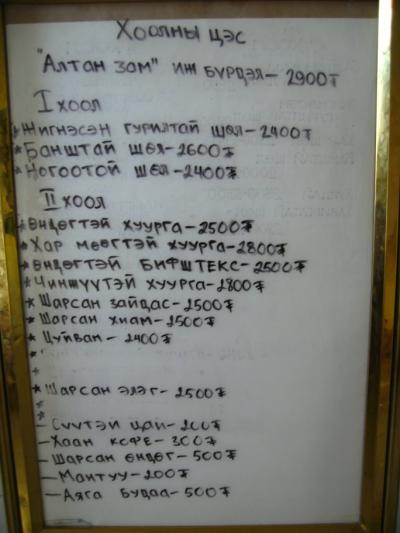 Хоолны цэс
"Алтан зам" иж бүрдэл - 2900₮
I хоол
* Жигнэсэн гурилтай шөл - 2400₮
* Банштай шөл - 2600₮
* Ногоотой шөл - 2400₮
II хоол
* Өндөгтэй хуурга - 2500₮
* Хар мөөгтэй хуурга - 2800₮
* Өндөгтэй бифштекс - 2500₮
* Чинжүүтэй хуурга - 2800₮
* Шарсан зайдас - 2500₮
* Шарсан хиам - 2500₮
* Цуйван - 2400₮
* Шарсан элэг - 2500₮
- Сүүтэй цай - 200₮
- Хаан кофе - 300₮
- Шарсан өндөг - 500₮
- Мантуу - 200₮
- Аяга будаа - 500₮